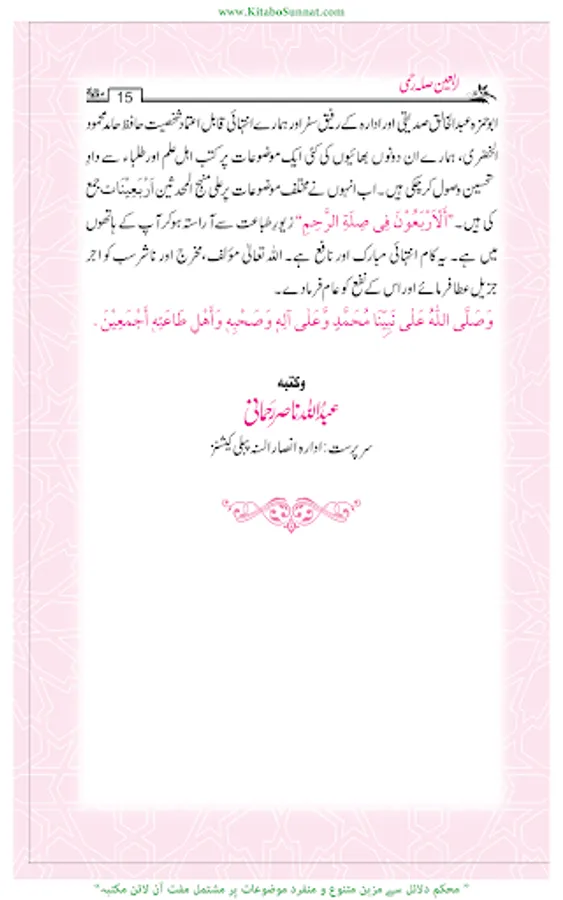 www.KitaboSunnat.com
اربعین صلہ رحمی
15
ابوحمزہ عبدالخالق صدیقی اور ادارہ کے رفیق سفر اور ہمارے انتہائی قابل اعتماد شخصیت حافظ حامد محمود
الخضری، ہمارے ان دونوں بھائیوں کی کئی ایک موضوعات پر کتب اہل علم اور طلباء سے دادِ
تحسین وصول کرچکی ہیں۔ اب انہوں نے مختلف موضوعات پر علی منہج المحدثین اَرْبَعِیْنَات جمع
کی ہیں۔ "اَلْاَرْبَعُوْنَ فِی صِلَةِ الرَّحِمِ" زیورِ طباعت سے آراستہ ہوکر آپ کے ہاتھوں
میں ہے۔ یہ کام انتہائی مبارک اور نافع ہے۔ اللہ تعالیٰ مؤلف، مخرج اور ناشر سب کو اجر
جزیل عطا فرمائے اور اس کے نفع کو عام فرمادے۔
وَصَلَّی اللّٰهُ عَلٰی نَبِیِّنَا مُحَمَّدٍ وَّعَلٰی آلِهٖ وَصَحْبِهٖ وَأَهْلِ طَاعَتِهٖ أَجْمَعِیْنَ.
وکتبه
عبداللہ ناصر رحمانی
سرپرست: ادارہ انصار السنہ پبلی کیشنز
"محکم دلائل سے مزین متنوع و منفرد موضوعات پر مشتمل مفت آن لائن مکتبہ"